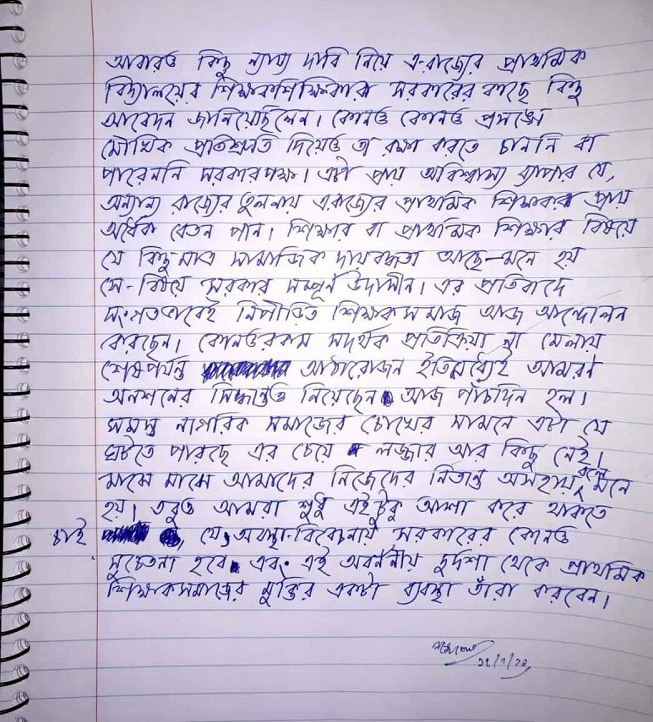 আবারও কিছু ন্যায্য দাবি নিয়ে এ-রাজ্যের প্রাথমিক
বিদ্যালয়ের শিক্ষকশিক্ষিকারা সরকারের কাছে কিছু
আবেদন জানিয়েছিলেন। কোনও কোনও প্রসঙ্গে
মৌখিক প্রতিশ্রুতি দিয়েও তা রক্ষা করতে চাননি বা
পারেননি সরকারপক্ষ। এটা প্রায় অবিশ্বাস্য ব্যাপার যে,
অন্যান্য রাজ্যের তুলনায় এরাজ্যের প্রাথমিক শিক্ষকরা প্রায়
অর্ধেক বেতন পান। শিক্ষার বা প্রাথমিক শিক্ষার বিষয়ে
যে কিছুমাত্র সামাজিক দায়বদ্ধতা আছে—মনে হয়
সে-বিষয়ে সরকার সম্পূর্ণ উদাসীন। এর প্রতিবাদে
সংগতকারণেই নিপীড়িত শিক্ষকসমাজ আজ আন্দোলন
করছেন। কোনওরকম সদর্থক প্রতিক্রিয়া না মেলায়
শেষপর্যন্ত আঠারোজন ইতিমধ্যেই আমরণ
অনশনের সিদ্ধান্তও নিয়েছেন আজ পাঁচদিন হল।
সমস্ত নাগরিক সমাজের চোখের সামনে এটা যে
ঘটতে পারছে এর চেয়ে লজ্জার আর কিছু নেই।
মাঝে মাঝে আমাদের নিজেদের নিতান্ত অসহায় বলে মনে
হয়। তবুও আমরা শুধু এইটুকু আশা করে থাকতে
চাই যে, অবস্থা-বিবেচনায় সরকারের কোনও
সুচেতনা হবে এবং এই অবর্ণনীয় দুর্দশা থেকে প্রাথমিক
শিক্ষকসমাজের মুক্তির একটা ব্যবস্থা তাঁরা করবেন।